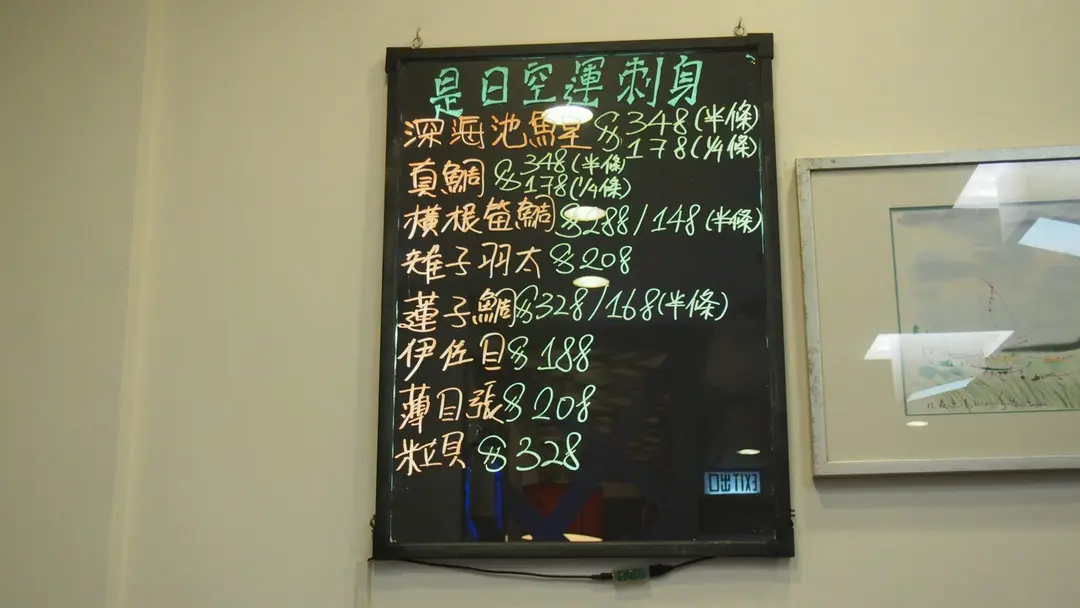 是日空運刺身
深海池魚皇 $348(半條)
178(¼條)
真鯛 $348(半條)
178(¼條)
横根笛鯛 $288/148(半條)
雉子羽太 $208
蓮子鯛 $328/168(半條)
伊佐目 $188
薄目張 $208
粒貝 $328
EXIT出口